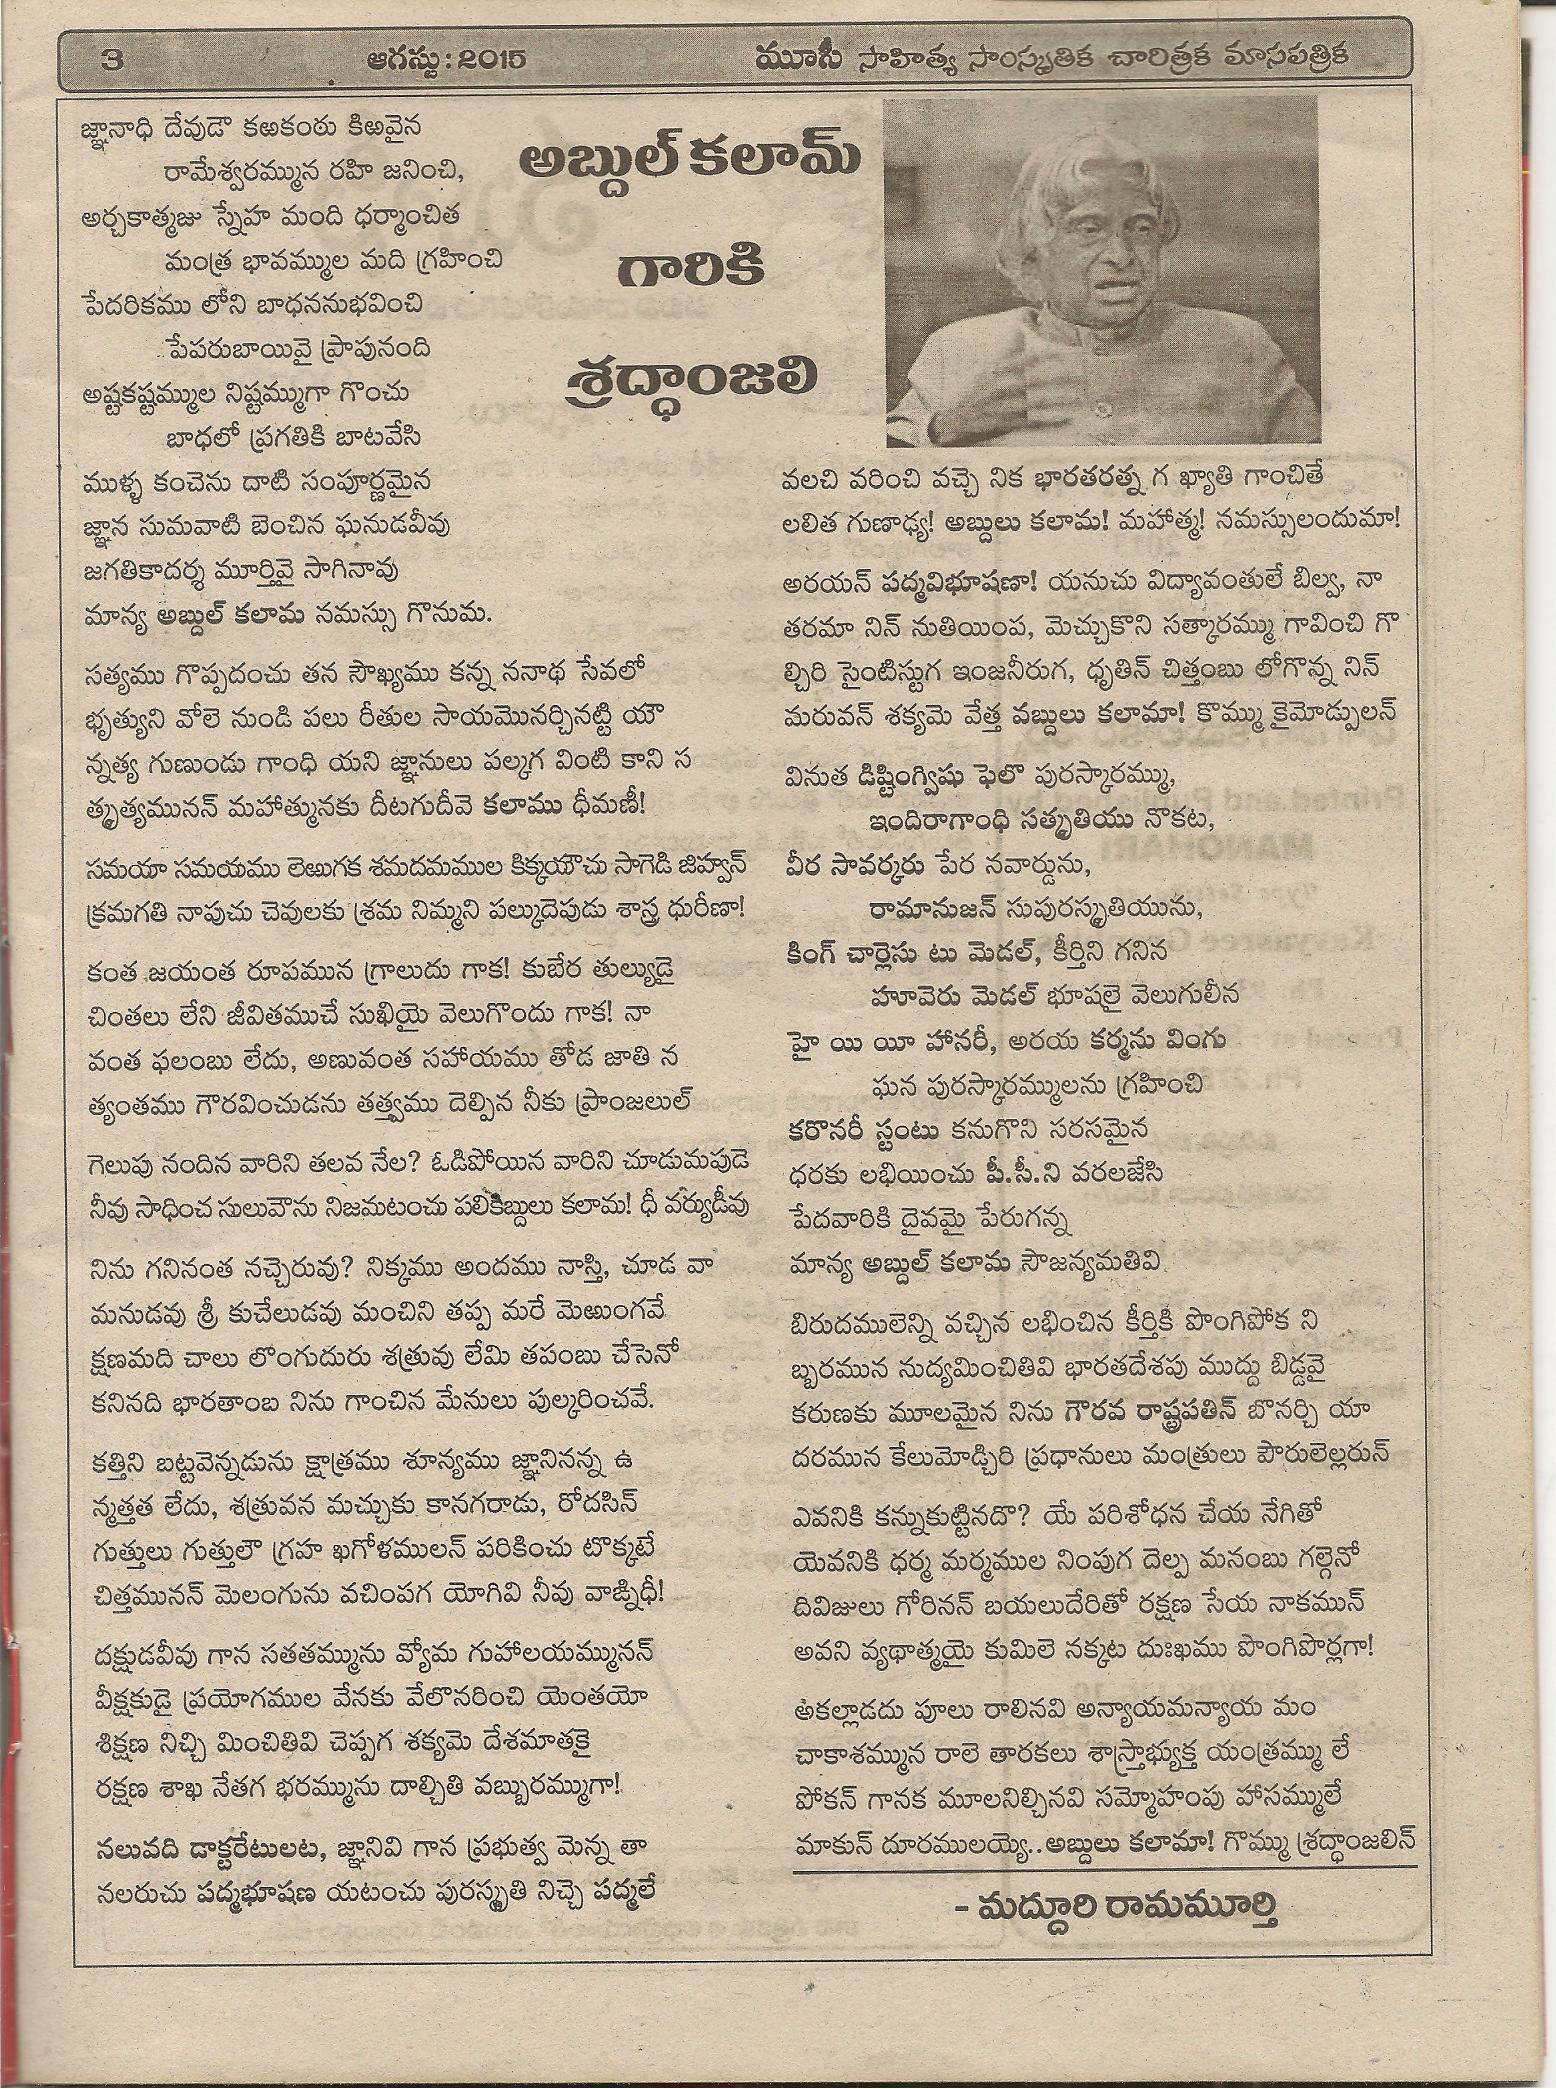 3 ఆగస్టు: 2015 మూసీ సాహిత్య సాంస్కృతిక చారిత్రక మాసపత్రిక
అబ్దుల్ కలామ్
గారికి
శ్రద్ధాంజలి
జ్ఞానాధి దేవుడౌ కఱకంఠు కిఱవైన
రామేశ్వరమ్మున రహి జనించి,
అర్చకాత్మజు స్నేహ మంది ధర్మాంచిత
మంత్ర భావమ్ముల మది గ్రహించి
పేదరికము లోని బాధననుభవించి
పేపరుబాయివై ప్రాపునంది
అష్టకష్టమ్ముల నిష్టమ్ముగా గొంచు
బాధలో ప్రగతికి బాటవేసి
ముళ్ళ కంచెను దాటి సంపూర్ణమైన
జ్ఞాన సుమవాటి బెంచిన ఘనుడవీవు
జగతికాదర్శ మూర్తివై సాగినావు
మాన్య అబ్దుల్ కలామ నమస్సు గొనుమ.
సత్యము గొప్పదంచు తన సౌఖ్యము కన్న ననాథ సేవలో
భృత్యుని వోలె నుండి పలు రీతుల సాయమొనర్చినట్టి యౌ
న్నత్య గుణుండు గాంధి యని జ్ఞానులు పల్కగ వింటి కాని స
త్కృత్యమునన్ మహాత్మునకు దీటగుదీవె కలాము ధీమణీ!
సమయా సమయము లెఱుగక శమదమముల కిక్కయౌచు సాగెడి జిహ్వన్
క్రమగతి నాపుచు చెవులకు శ్రమ నిమ్మని పల్కుదెపుడు శాస్త్ర ధురీణా!
కంత జయంత రూపమున గ్రాలుదు గాక! కుబేర తుల్యుడై
చింతలు లేని జీవితముచే సుఖియై వెలుగొందు గాక! నా
వంత ఫలంబు లేదు, అణువంత సహాయము తోడ జాతి న
త్యంతము గౌరవించుడను తత్త్వము దెల్పిన నీకు ప్రాంజలుల్
గెలుపు నందిన వారిని తలవ నేల? ఓడిపోయిన వారిని చూడుమపుడె
నీవు సాధించ సులువౌను నిజమటంచు పలికిబ్దులు కలామ! ధీ వర్యుడీవు
నిను గనినంత నచ్చెరువు? నిక్కము అందము నాస్తి, చూడ వా
మనుడవు శ్రీ కుచేలుడవు మంచిని తప్ప మరే మెఱుంగవే
క్షణమది చాలు లొంగుదురు శత్రువు లేమి తపంబు చేసెనో
కనినది భారతాంబ నిను గాంచిన మేనులు పుల్కరించవే.
కత్తిని బట్టవెన్నడును క్షాత్రము శూన్యము జ్ఞానినన్న ఉ
న్మత్తత లేదు, శత్రువన మచ్చుకు కానగరాడు, రోదసిన్
గుత్తులు గుత్తులౌ గ్రహ ఖగోళములన్ పరికించు టొక్కటే
చిత్తమునన్ మెలంగును వచింపగ యోగివి నీవు వాఙ్నిధీ!
దక్షుడవీవు గాన సతతమ్మును వ్యోమ గుహాలయమ్మునన్
వీక్షకుడై ప్రయోగముల వేనకు వేలొనరించి యెంతయో
శిక్షణ నిచ్చి మించితివి చెప్పగ శక్యమె దేశమాతకై
రక్షణ శాఖ నేతగ భరమ్మును దాల్చితి వబ్బురమ్ముగా!
నలువది డాక్టరేటులట, జ్ఞానివి గాన ప్రభుత్వ మెన్న తా
నలరుచు పద్మభూషణ యటంచు పురస్కృతి నిచ్చె పద్మలే
వలచి వరించి వచ్చె నిక భారతరత్న గ ఖ్యాతి గాంచితే
లలిత గుణాఢ్య! అబ్దులు కలామ! మహాత్మ! నమస్సులందుమా!
అరయన్ పద్మవిభూషణా! యనుచు విద్యావంతులే బిల్వ, నా
తరమా నిన్ నుతియింప, మెచ్చుకొని సత్కారమ్ము గావించి గొ
ల్చిరి సైంటిస్టుగ ఇంజనీరుగ, ధృతిన్ చిత్తంబు లోగొన్న నిన్
మరువన్ శక్యమె వేత్త వబ్దులు కలామా! కొమ్ము కైమోడ్పులన్
వినుత డిష్టింగ్విషు ఫెలొ పురస్కారమ్ము,
ఇందిరాగాంధి సత్కృతియు నొకట,
వీర సావర్కరు పేర నవార్డును,
రామానుజన్ సుపురస్కృతియును,
కింగ్ చార్లెసు టు మెడల్, కీర్తిని గనిన
హూవెరు మెడల్ భూషలై వెలుగులీన
హై యి యీ హానరీ, అరయ కర్మను వింగు
ఘన పురస్కారమ్ములను గ్రహించి
కరొనరీ స్టంటు కనుగొని సరసమైన
ధరకు లభియించు పీ.సీ.ని వరలజేసి
పేదవారికి దైవమై పేరుగన్న
మాన్య అబ్దుల్ కలామ సౌజన్యమతివి
బిరుదములెన్ని వచ్చిన లభించిన కీర్తికి పొంగిపోక ని
బ్బరమున నుద్యమించితివి భారతదేశపు ముద్దు బిడ్డవై
కరుణకు మూలమైన నిను గౌరవ రాష్ట్రపతిన్ బొనర్చి యా
దరమున కేలుమోడ్చిరి ప్రధానులు మంత్రులు పౌరులెల్లరున్
ఎవనికి కన్నుకుట్టినదొ? యే పరిశోధన చేయ నేగితో
యెవనికి ధర్మ మర్మముల నింపుగ దెల్ప మనంబు గల్గెనో
దివిజులు గోరినన్ బయలుదేరితో రక్షణ సేయ నాకమున్
అవని వ్యథాత్మయై కుమిలె నక్కట దుఃఖము పొంగిపొర్లగా!
ఆకల్లాడదు పూలు రాలినవి అన్యాయమన్యాయ మం
చాకాశమ్మున రాలె తారకలు శాస్త్రాభ్యుక్త యంత్రమ్ము లే
పోకన్ గానక మూలనిల్చినవి సమ్మోహంపు హాసమ్ములే
మాకున్ దూరములయ్యె..అబ్దులు కలామా! గొమ్ము శ్రద్ధాంజలిన్
- మద్దూరి రామమూర్తి